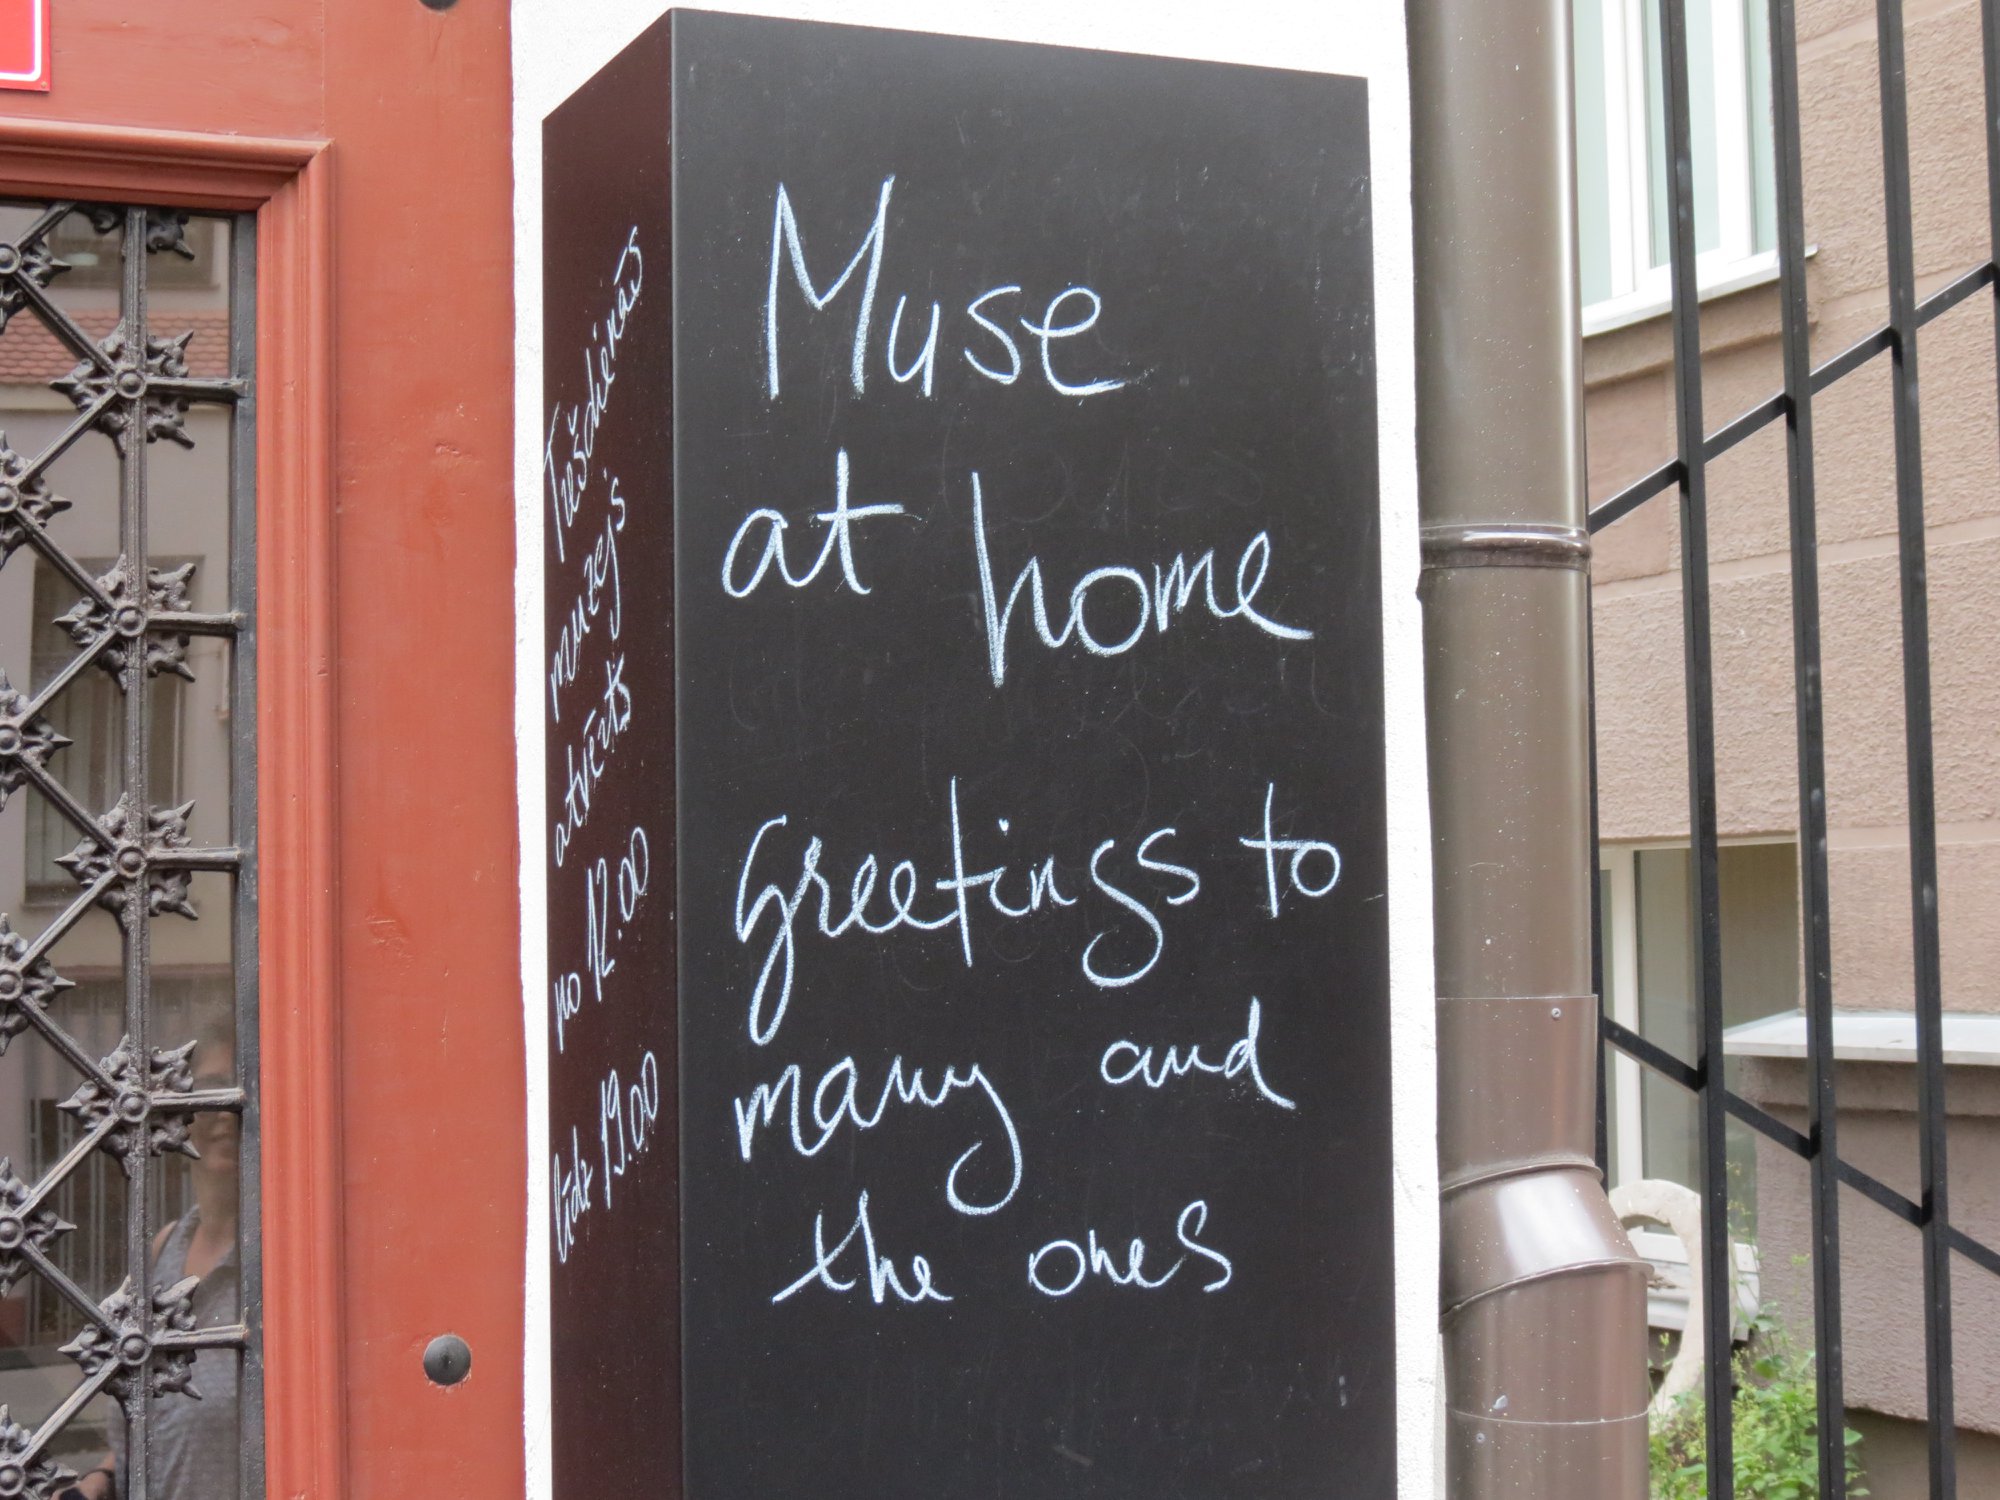 Trešdienās
muzejs
atvērts
no 12.00
līdz 19.00
Muse
at home
greetings to
many and
the ones